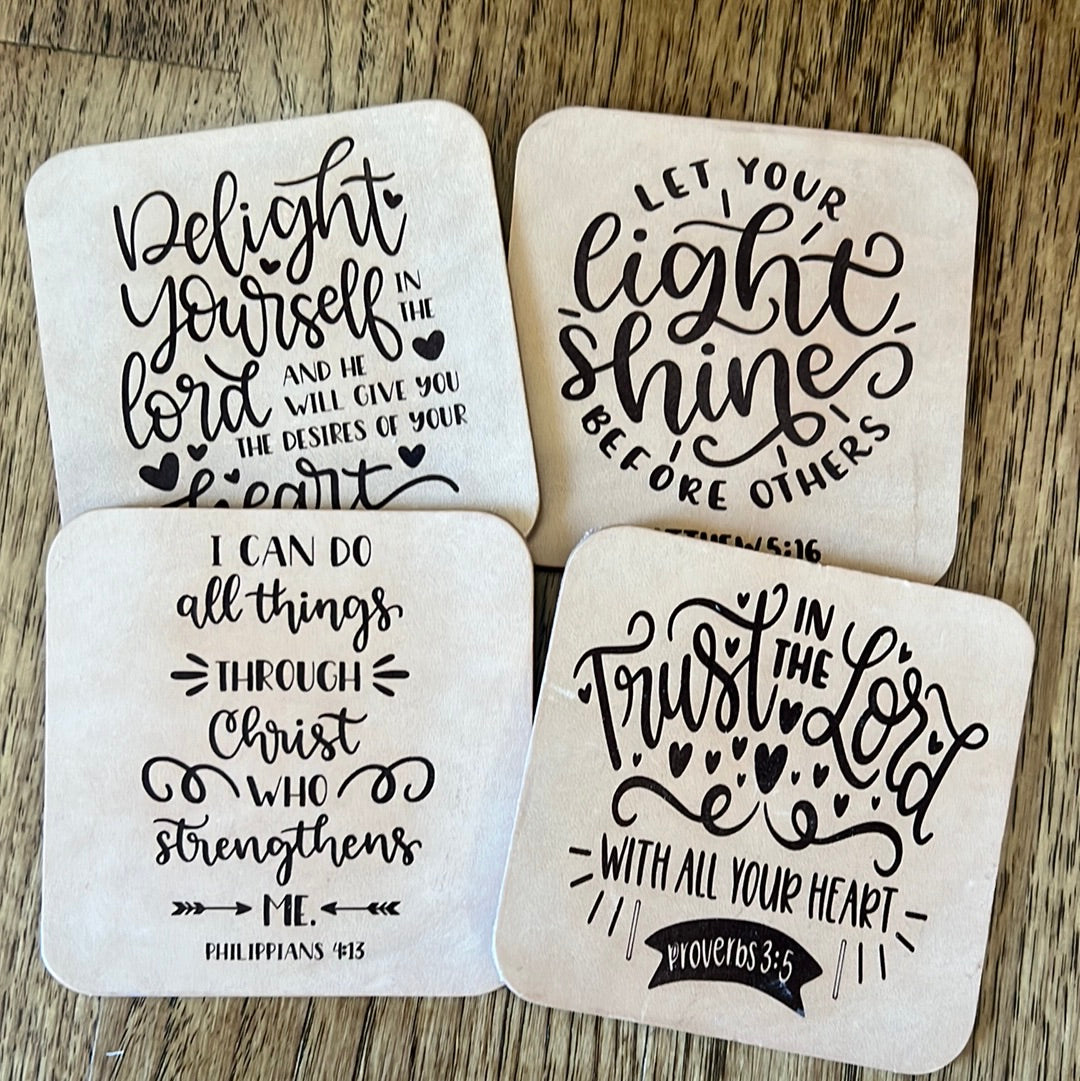 Delight
Yourself IN
THE
lord AND HE
WILL GIVE YOU
THE DESIRES OF YOUR
heart
LET YOUR
light
shine
BEFORE OTHERS
5:16
I CAN DO
all things
THROUGH
Christ
WHO
strengthens
ME.
PHILIPPIANS 4:13
Trust IN
THE Lord
WITH ALL YOUR HEART
proverbs 3:5